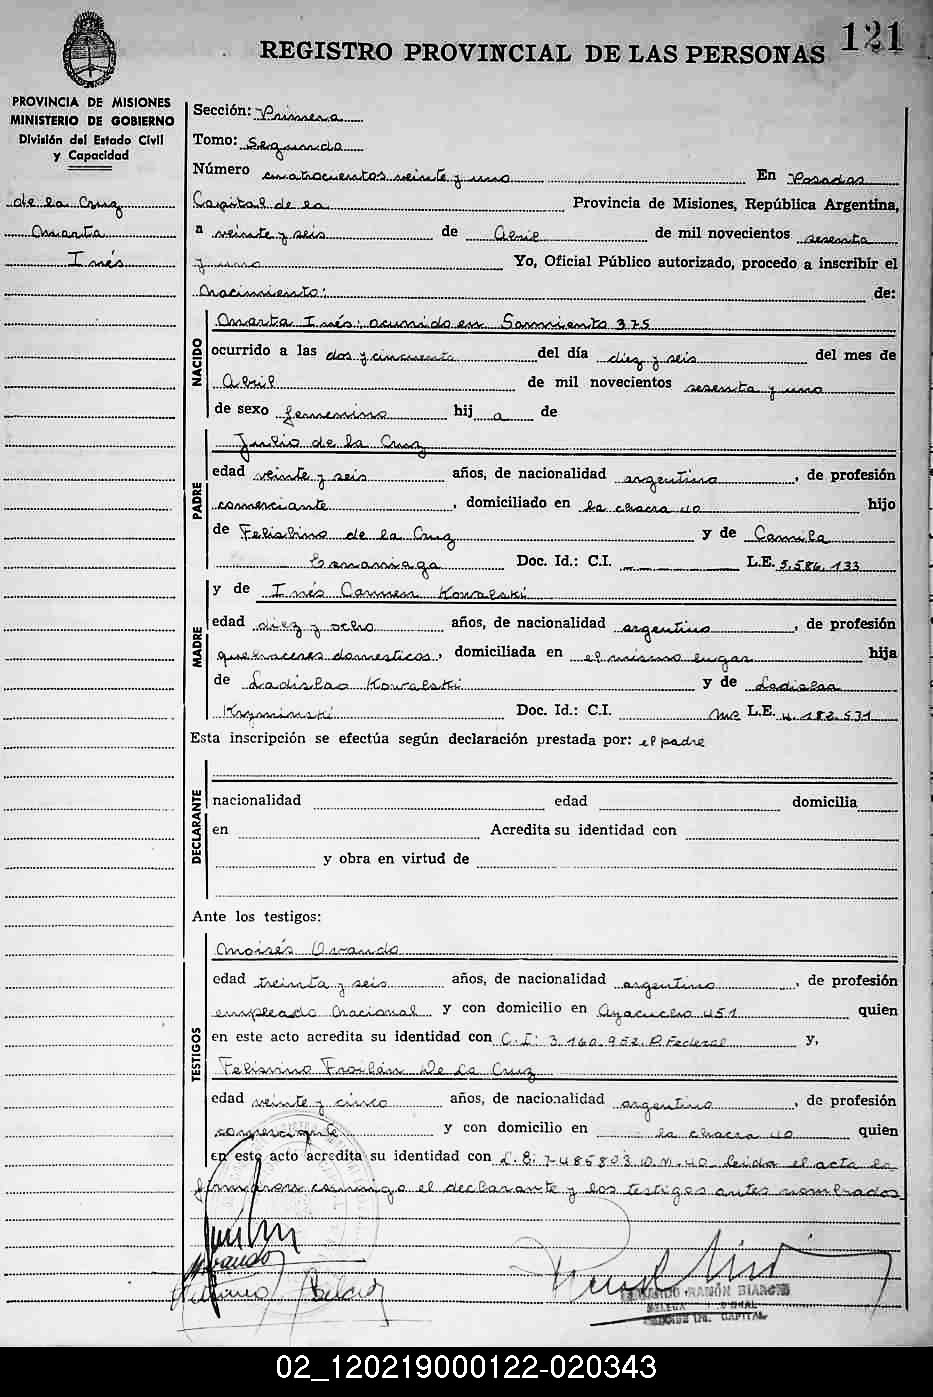 121
REGISTRO PROVINCIAL DE LAS PERSONAS
PROVINCIA DE MISIONES
MINISTERIO DE GOBIERNO
División del Estado Civil
y Capacidad
de la Cruz
Marta
Inés
Sección: Primera
Tomo: Segundo
Número cuatrocientos veinte y uno En Posadas
Capital de la Provincia de Misiones, República Argentina,
a veinte y seis de Abril de mil novecientos sesenta
y uno Yo, Oficial Público autorizado, procedo a inscribir el
Nacimiento: de:
NACIDO
Marta Inés: ocurrido en Sarmiento 375
ocurrido a las dos y cincuenta del día diez y seis del mes de
Abril de mil novecientos sesenta y uno
de sexo femenino hij a de
PADRE
Julio de la Cruz
edad veinte y seis años, de nacionalidad argentino, de profesión
comerciante, domiciliado en la chacra 40 hijo
de Felisbino de la Cruz y de Camila
Doc. Id.: C.I. L.E. 5.586.133
y de Inés Carmen Kowalski
MADRE
edad diez y ocho años, de nacionalidad argentino, de profesión
quehaceres domesticos, domiciliada en el mismo lugar hija
de Ladislao Kowalski y de Ladislaa
Kryminski Doc. Id.: C.I. L.E. 4.182.531
Esta inscripción se efectúa según declaración prestada por: el padre
DECLARANTE
nacionalidad edad domicilia
en Acredita su identidad con
y obra en virtud de
Ante los testigos:
TESTIGOS
Moisés Ovando
edad treinta y seis años, de nacionalidad argentino, de profesión
empleado Nacional y con domicilio en Ayacucho 451 quien
en este acto acredita su identidad con C.I: 3.160.952.P.Federal y,
Felisnino Froilán De La Cruz
edad veinte y cinco años, de nacionalidad argentino, de profesión
comerciante y con domicilio en la chacra 40 quien
en este acto acredita su identidad con L.E: 7.485803.D.M.40. leida el acta la
firmaron conmigo el declarante y los testigos antes nombrados
Ovando
RAMÓN
CAPITAL
02_120219000122-020343